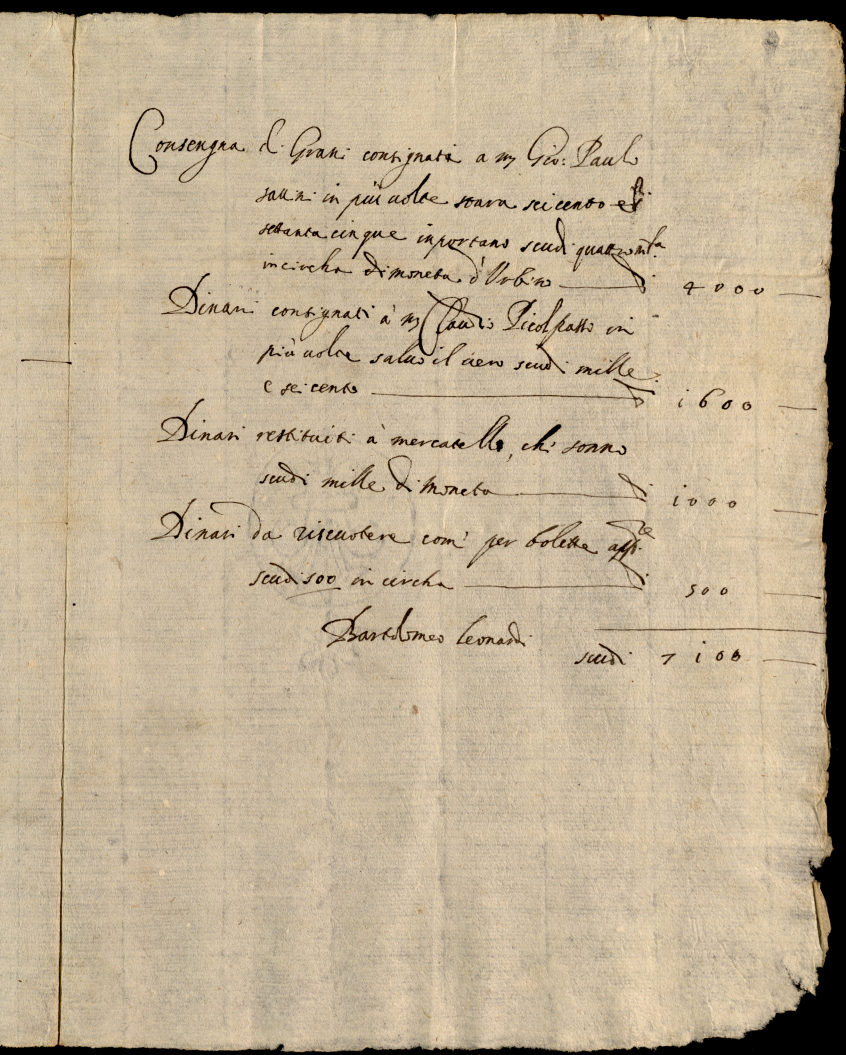 Consengna di Grani consignati a m Gio: Paulo
in più uolte stara seicento e
settanta cinque inportano scudi quattromila
incircha di moneta d'Urbino 4000
Dinari consignati à m Claudio Picolpasso in
più uolte saluo il uero scudi mille
e seicento 1600
Dinari restituiti à mercatello, chi sonno
scudi mille di moneta 1000
Dinari da riscuotere com' per bolette
scudi 500 in circha 500
Bartolomeo Leonardi
scudi 7100